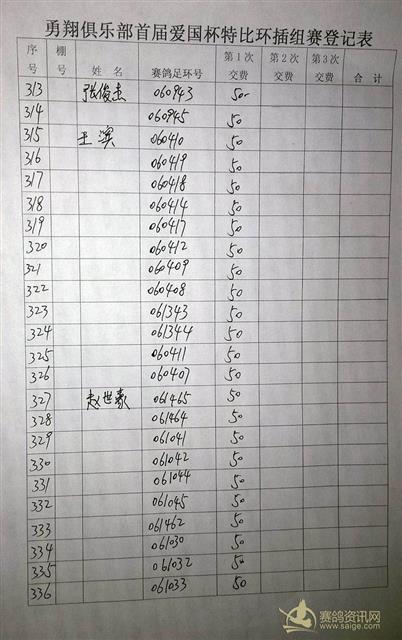 勇翔俱乐部首届爱国杯特比环插组赛登记表
序号 棚号 姓名 赛鸽足环号 第1次交费 第2次交费 第3次交费 合计
313 张俊杰 060943 50
314 060945 50
315 王滨 060410 50
316 060419 50
317 060418 50
318 060414 50
319 060417 50
320 060412 50
321 060409 50
322 060408 50
323 061343 50
324 061344 50
325 060411 50
326 060407 50
327 赵世豪 061465 50
328 061464 50
329 061041 50
330 061042 50
331 061044 50
332 061045 50
333 061462 50
334 061030 50
335 061032 50
336 061033 50
赛鸽资讯网
www.saige.com